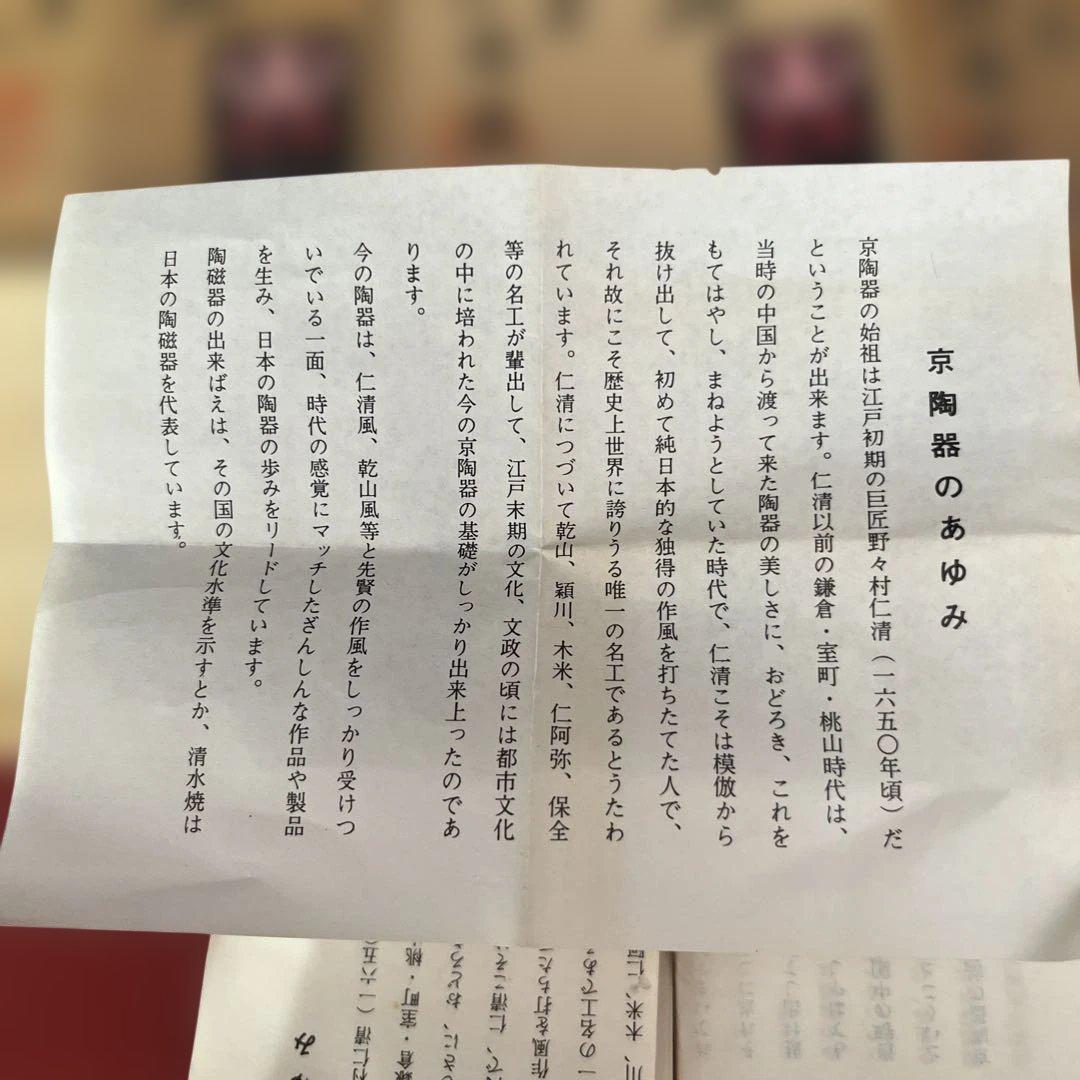 京陶器のあゆみ
京陶器の始祖は江戸初期の巨匠野々村仁清（一六五〇年頃）だ
ということが出来ます。仁清以前の鎌倉・室町・桃山時代は、
当時の中国から渡って来た陶器の美しさに、おどろき、これを
もてはやし、まねようとしていた時代で、仁清こそは模倣から
抜け出して、初めて純日本的な独得の作風を打ちたてた人で、
それ故にこそ歴史上世界に誇りうる唯一の名工であるとうたわ
れています。仁清につづいて乾山、穎川、木米、仁阿弥、保全
等の名工が輩出して、江戸末期の文化、文政の頃には都市文化
の中に培われた今の京陶器の基礎がしっかり出来上ったのであ
ります。
今の陶器は、仁清風、乾山風等と先賢の作風をしっかり受けつ
いでいる一面、時代の感覚にマッチしたざんしんな作品や製品
を生み、日本の陶器の歩みをリードしています。
陶磁器の出来ばえは、その国の文化水準を示すとか、清水焼は
日本の陶磁器を代表しています。
川、木米、仁阿
一の名工であ
作風を打ちた
で、仁清こそ
さに、おどろ
鎌倉・室町・桃
村仁清（一六五
み